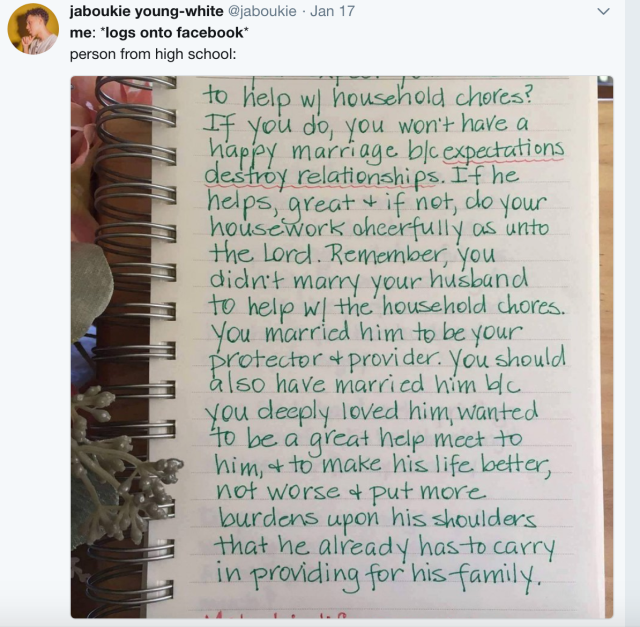 jaboukie young-white @jaboukie · Jan 17
me: *logs onto facebook*
person from high school:
to help w/ household chores?
If you do, you won't have a
happy marriage b/c expectations
destroy relationships. If he
helps, great + if not, do your
housework cheerfully as unto
the Lord. Remember, you
didn't marry your husband
to help w/ the household chores.
You married him to be your
protector + provider. You should
also have married him b/c
you deeply loved him, wanted
to be a great help meet to
him, + to make his life better,
not worse + put more
burdens upon his shoulders
that he already has to carry
in providing for his family.